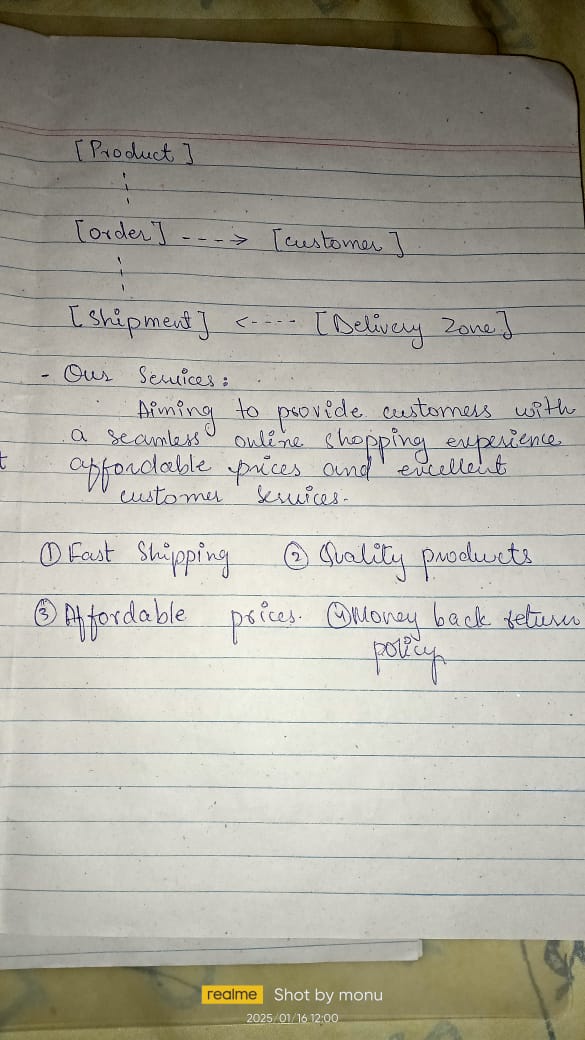 [Product]
[order] ---> [customer]
[Shipment] <---- [Delivery Zone]
- Our Services:
Aiming to provide customers with
a seamless online shopping experience
affordable prices and excellent
customer services.
① Fast Shipping ② Quality products
③ Affordable prices. ④ Money back return
policy
realme Shot by monu
2025/01/16 12:00